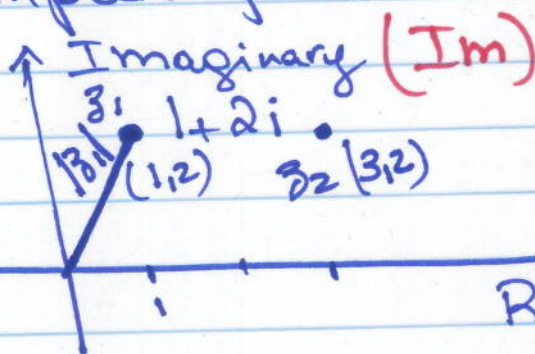 Imaginary (Im)
z₁ 1+2i
|z₁| (1,2) z₂ (3,2)
1
R